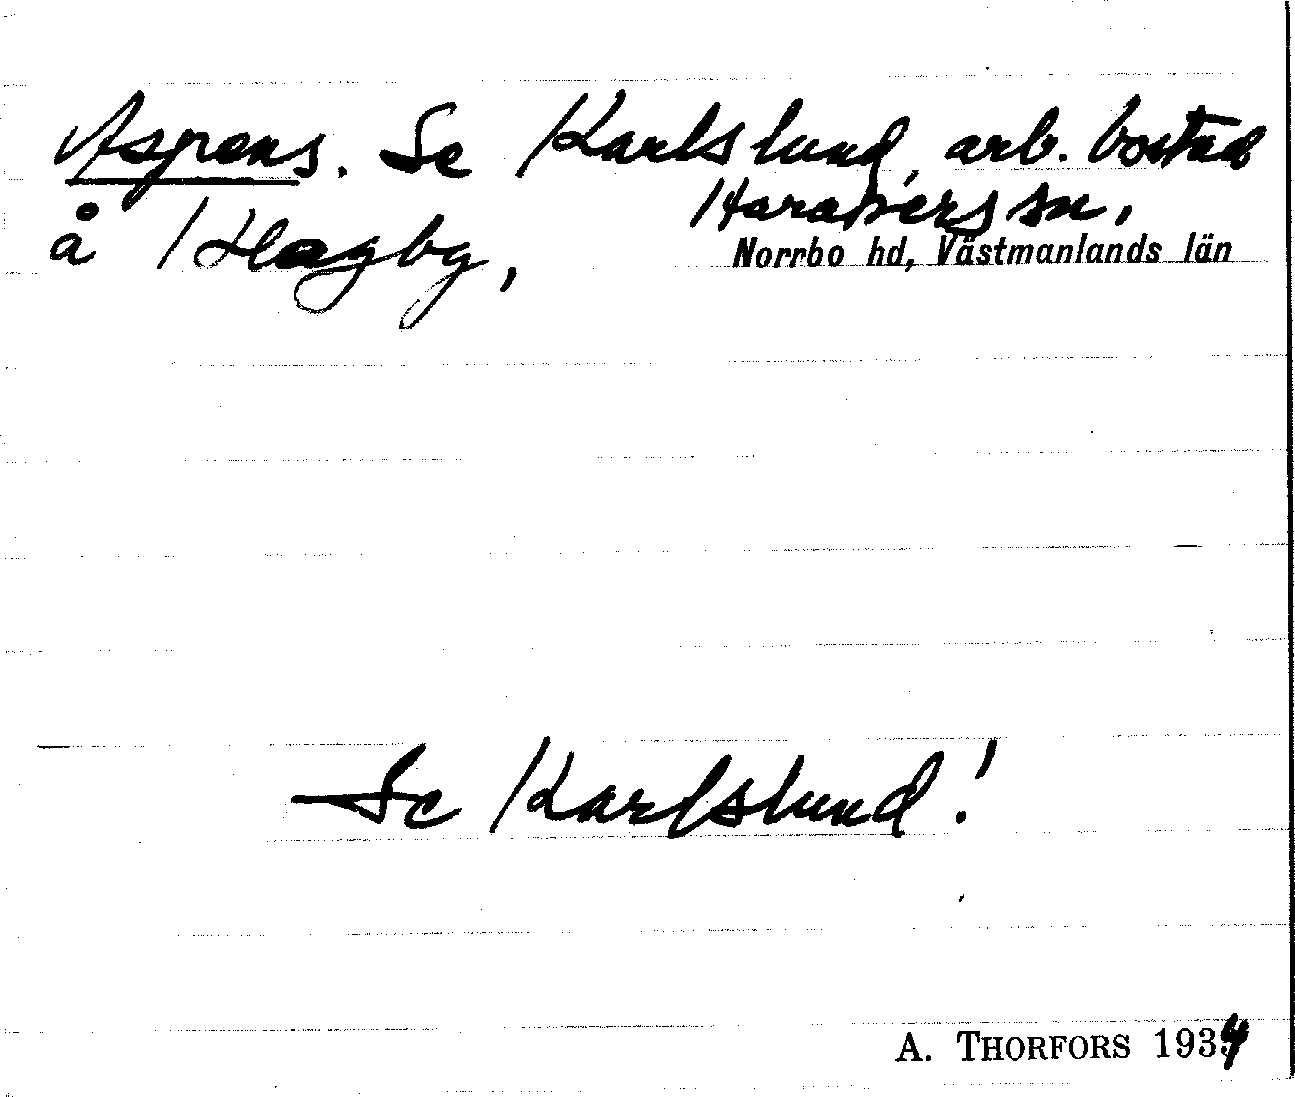 Aspens. Se Karlslund, arb. bostad
å Hagby, Harakers sn.
Norrbo hd, Västmanlands län
Se Karlslund!
A. THORFORS 1934